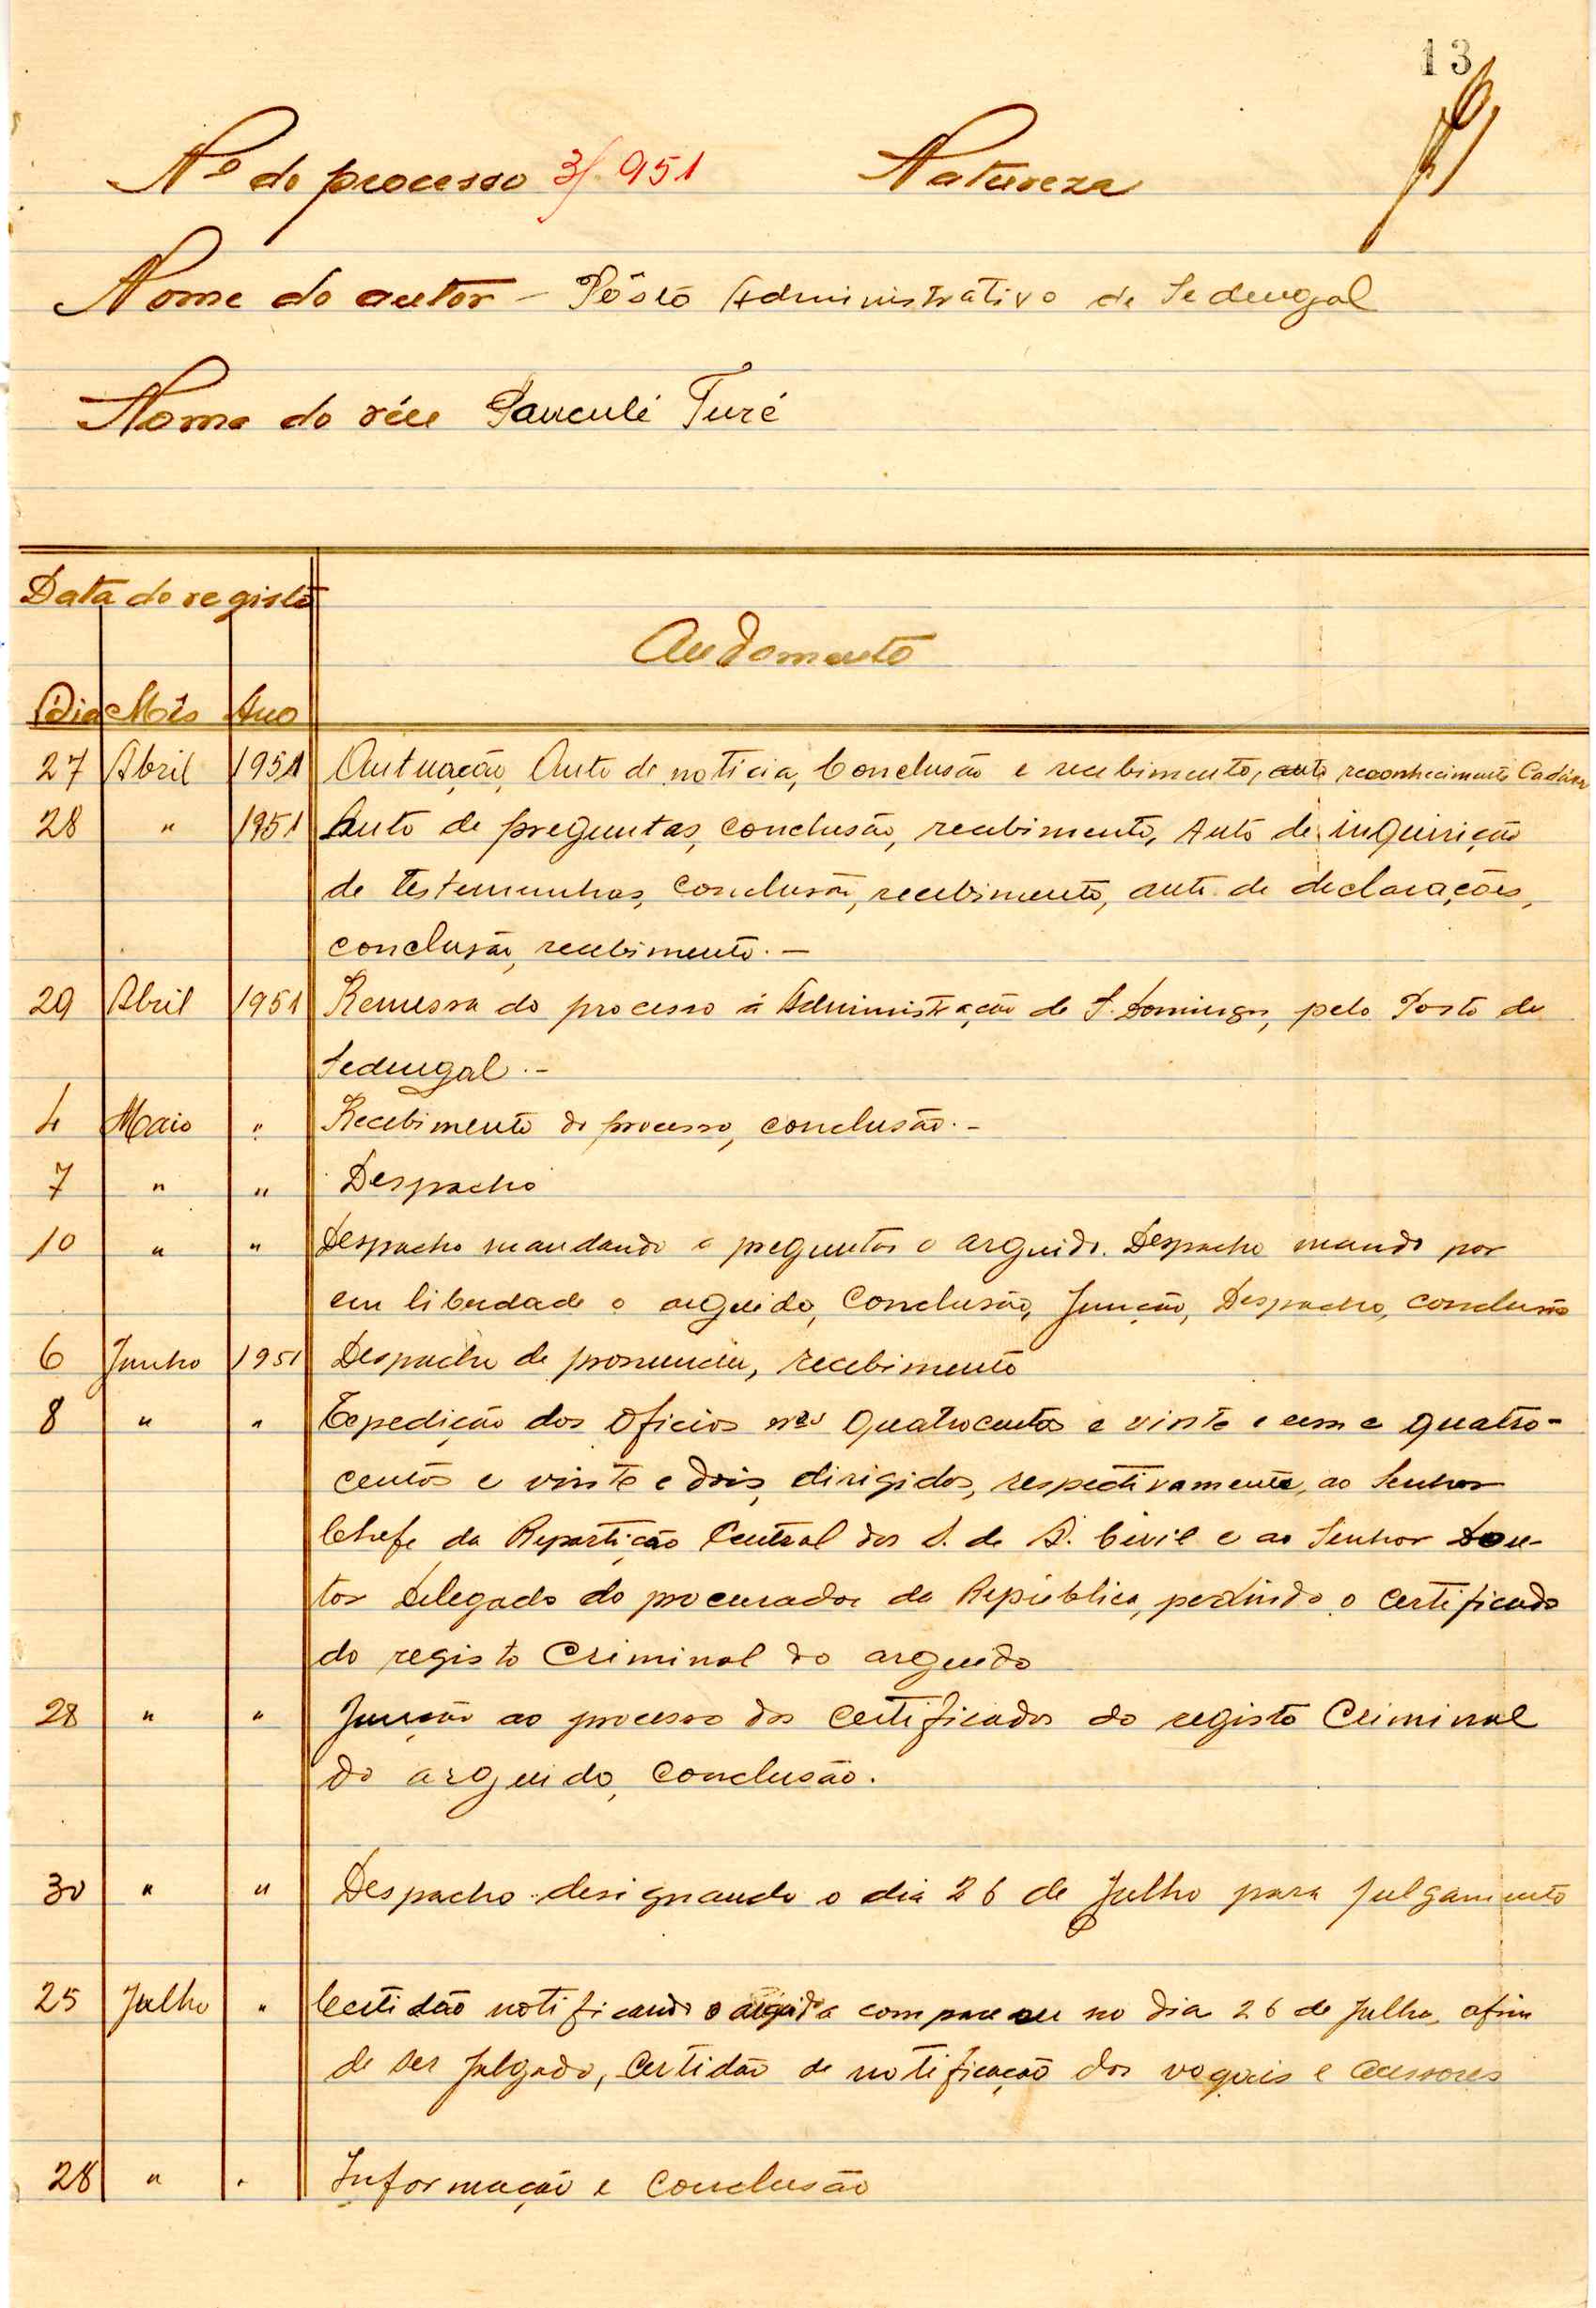 13
Nº do processo 3/951 Natureza
Nome do autor - Pôsto Administrativo de Sedengal
Nome do réu Sauculé Turé
Data do registo
Andamento
Dia Mês Ano
27 Abril 1951 Autuação, Auto de notícia, Conclusão e recebimento, auto reconhecimento Cadáver
28 " 1951 Auto de preguntas, conclusão, recebimento, Auto de inquirição
de testemunhas, conclusão, recebimento, auto de declarações,
conclusão, recebimento. -
29 Abril 1951 Remessa do processo á Administração de S. Domingos, pelo Posto de
Sedengal. -
4 Maio " Recebimento do processo, conclusão. -
7 " " Despacho
10 " " Despacho mandando a preguntas o arguido. Despacho mando por
em liberdade o arguido, Conclusão, Junção, Despacho, conclusão
6 Junho 1951 Despacho de pronuncia, recebimento
8 " " Expedição dos Oficios nºs quatrocentos e vinte e um e quatro-
centos e vinte e dois, dirigidos, respectivamente, ao Senhor
Chefe da Repartição Central dos S. de A. Civil e ao Senhor Dou-
tor Delegado do procurador da República, pedindo o certificado
do registo Criminal do arguido
28 " " Junção ao processo dos certificados do registo Criminal
do arguido, conclusão.
30 " " Despacho designando o dia 26 de Julho para julgamento
25 Julho " Certidão notificando o arguido a comparecer no dia 26 de Julho, afim
de ser julgado, Certidão de notificação dos vogais e acessores
28 " " Informação e Conclusão